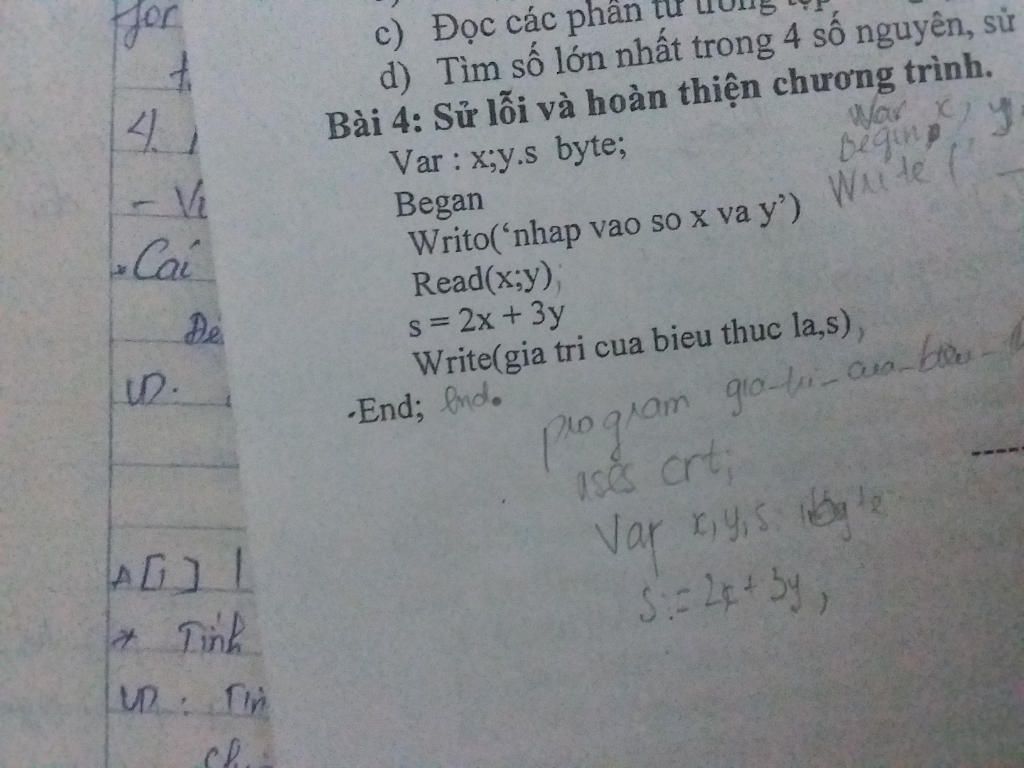 for
t
c) Đọc các phần tử trong tệp
d) Tìm số lớn nhất trong 4 số nguyên, sử
4.
Bài 4: Sử lỗi và hoàn thiện chương trình.
Var x, y,
Var : x;y.s byte;
Begin,
Began
Write (
- Vi
Writo(‘nhap vao so x va y’)
* Cái
Read(x;y),
s = 2x + 3y
Write(gia tri cua bieu thuc la,s),
VD.
-End; End.
program gia-tri-cua-bieu-
uses crt;
Var x, y, s: byte
A[i]
s := 2x + 3y,
* Tính
VD: Tin